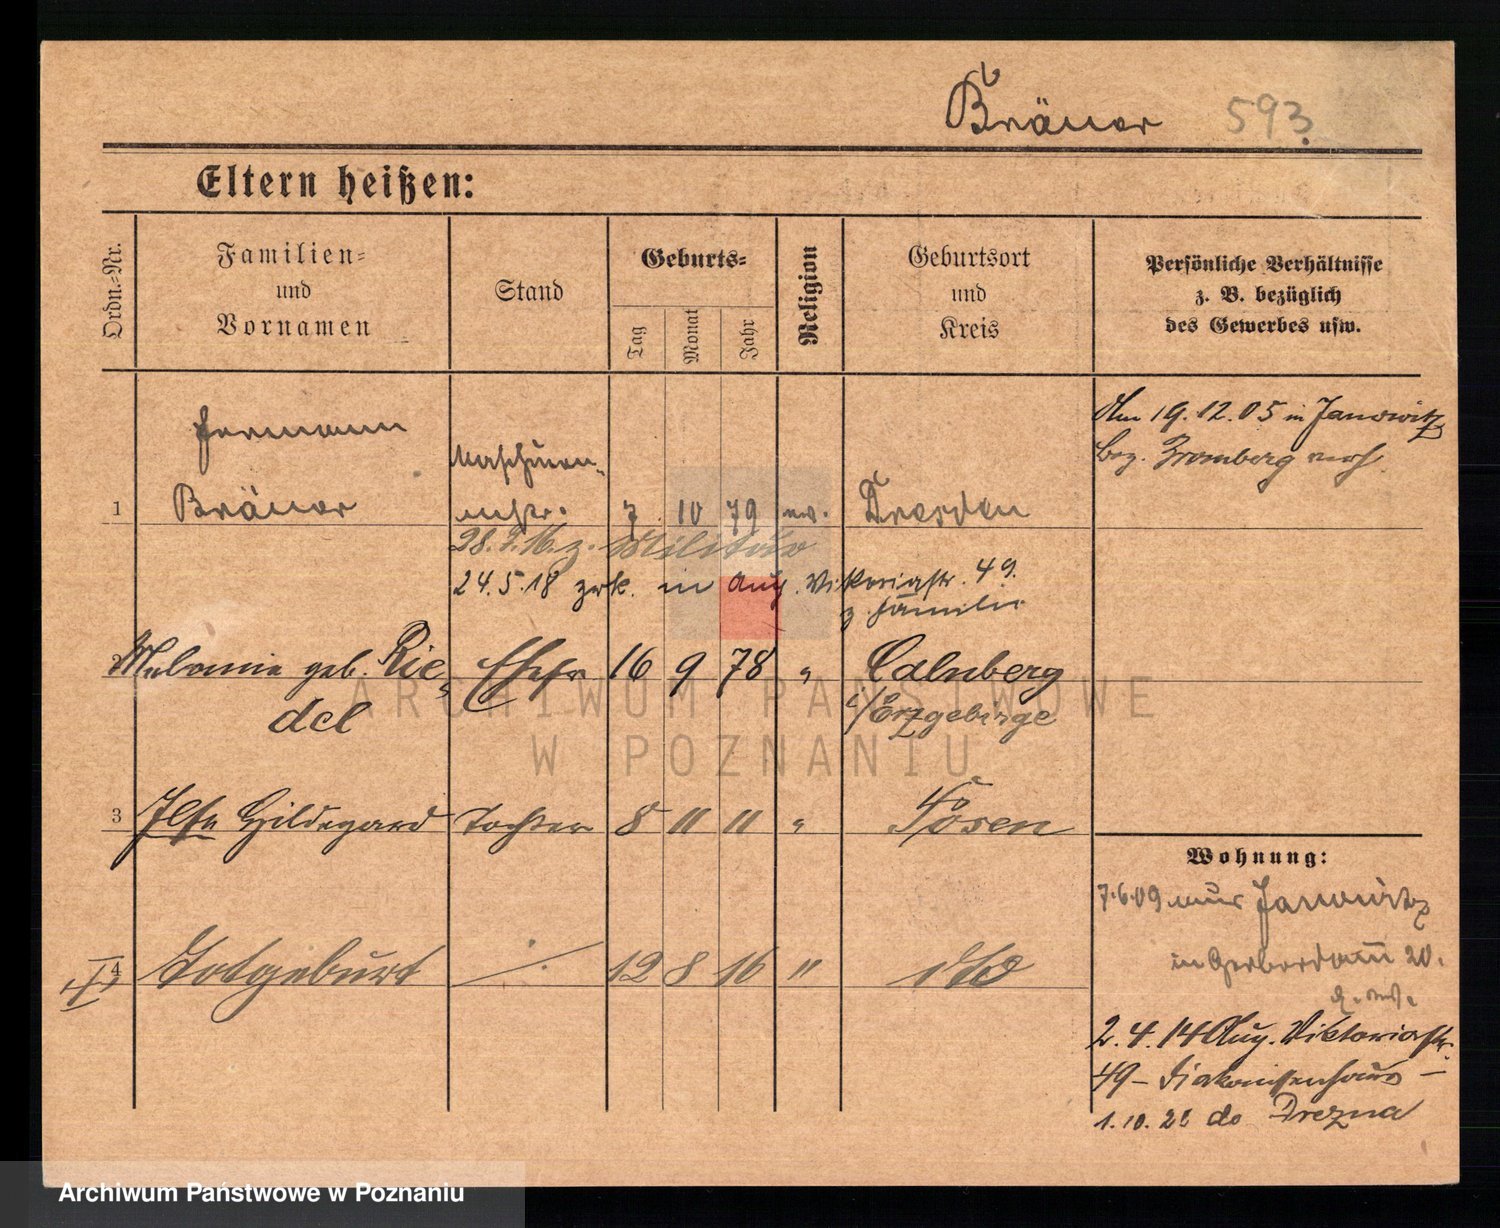 Bräuer 593.
Eltern heißen:
Ordn.-Nr.
Familien-
und
Vornamen
Stand
Geburts-
Tag
Monat
Jahr
Religion
Geburtsort
und
Kreis
Persönliche Verhältnisse
z. B. bezüglich
des Gewerbes usw.
Am 19.12.05 in Janowitz
Bez. Bromberg verh.
1
Hermann
Bräuer
Maschinen-
mstr. 7 10 79 ev. Dresden
z. Militär
24.5.18 zrk. in Aug. Viktoriastr. 49.
z. Familie
2 geb. Rie- Ehefr 16 9 78 " Calnberg
del i/Erzgebirge
3 Ilse Hildegard Tochter 8 11 11 " Posen
Wohnung:
7.6.09 aus Janowitz
in Gerberdamm 20.
4 Totgeburt ·/. 12 8 16 " dto
2.4.14 Aug. Viktoriastr.
49 – Diakonissenhaus –
1.10.21 do Drezna
ARCHIWUM PAŃSTWOWE
W POZNANIU
Archiwum Państwowe w Poznaniu